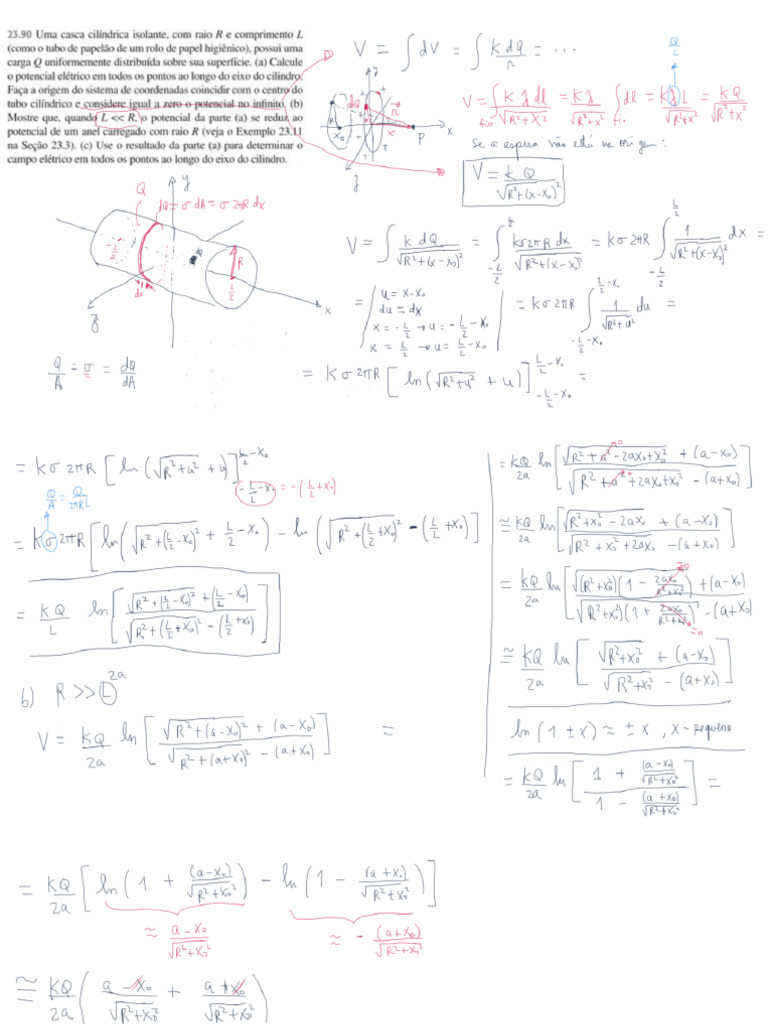 23.90 Uma casca cilíndrica isolante, com raio R e comprimento L
(como o tubo de papelão de um rolo de papel higiênico), possui uma
carga Q uniformemente distribuída sobre sua superfície. (a) Calcule
o potencial elétrico em todos os pontos ao longo do eixo do cilindro.
Faça a origem do sistema de coordenadas coincidir com o centro do
tubo cilíndrico e considere igual a zero o potencial no infinito. (b)
Mostre que, quando L << R, o potencial da parte (a) se reduz ao
potencial de um anel carregado com raio R (veja o Exemplo 23.11
na Seção 23.3). (c) Use o resultado da parte (a) para determinar o
campo elétrico em todos os pontos ao longo do eixo do cilindro.
V = ∫ dV = ∫ k dQ / r = ...
Q/L
y dQ r R x₀ x P x z
V = ∫ k λ dl / √(R²+x²) = kλ / √(R²+x²) ∫ dl = kλL / √(R²+x²) = kQ / √(R²+x²)
Se a espira não está na origem:
V = kQ / √(R²+(x-x₀)²)
Q y dQ = σ dA = σ 2πR dx
-L/2 R L/2 dx x z
V = ∫ k dQ / √(R²+(x-x₀)²) = ∫_{-L/2}^{L/2} kσ2πR dx / √(R²+(x-x₀)²) = kσ2πR ∫_{-L/2}^{L/2} 1/√(R²+(x-x₀)²) dx =
= | u = x-x₀
du = dx
x = -L/2 → u = -L/2 - x₀
x = L/2 → u = L/2 - x₀ | = kσ2πR ∫_{-L/2-x₀}^{L/2-x₀} 1/√(R²+u²) du =
Q/A = σ = dQ/dA
= kσ2πR [ln(√(R²+u²) + u)]_{-L/2-x₀}^{L/2-x₀} =
= kσ2πR [ln(√(R²+u²) + u)]_{-L/2-x₀}^{L/2-x₀}
-L/2-x₀ = -(L/2+x₀)
Q/A = Q/2πRL
= kσ2πR [ln(√(R²+(L/2-x₀)²) + L/2-x₀) - ln(√(R²+(L/2+x₀)²) - (L/2+x₀)]
= kQ/L ln[ (√(R²+(L/2-x₀)²) + (L/2-x₀)) / (√(R²+(L/2+x₀)²) - (L/2+x₀)) ]
b) R >> L 2a
V = kQ/2a ln[ (√(R²+(a-x₀)²) + (a-x₀)) / (√(R²+(a+x₀)²) - (a+x₀)) ] =
= kQ/2a ln[ (√(R²+a²-2ax₀+x₀²) + (a-x₀)) / (√(R²+a²+2ax₀+x₀²) - (a+x₀)) ]
≅ kQ/2a ln[ (√(R²+x₀²-2ax₀) + (a-x₀)) / (√(R²+x₀²+2ax₀) - (a+x₀)) ]
= kQ/2a ln[ (√((R²+x₀²)(1 - 2ax₀/(R²+x₀²))) + (a-x₀)) / (√((R²+x₀²)(1 + 2ax₀/(R²+x₀²))) - (a+x₀)) ]
≅ kQ/2a ln[ (√(R²+x₀²) + (a-x₀)) / (√(R²+x₀²) - (a+x₀)) ]
ln(1±x) ≈ ±x, x → pequeno
= kQ/2a ln[ (1 + (a-x₀)/√(R²+x₀²)) / (1 - (a+x₀)/√(R²+x₀²)) ] =
= kQ/2a [ln(1 + (a-x₀)/√(R²+x₀²)) - ln(1 - (a+x₀)/√(R²+x₀²))]
≈ a-x₀/√(R²+x₀²) ≈ -(a+x₀)/√(R²+x₀²)
≅ kQ/2a ( a-x₀/√(R²+x₀²) + a+x₀/√(R²+x₀²) )